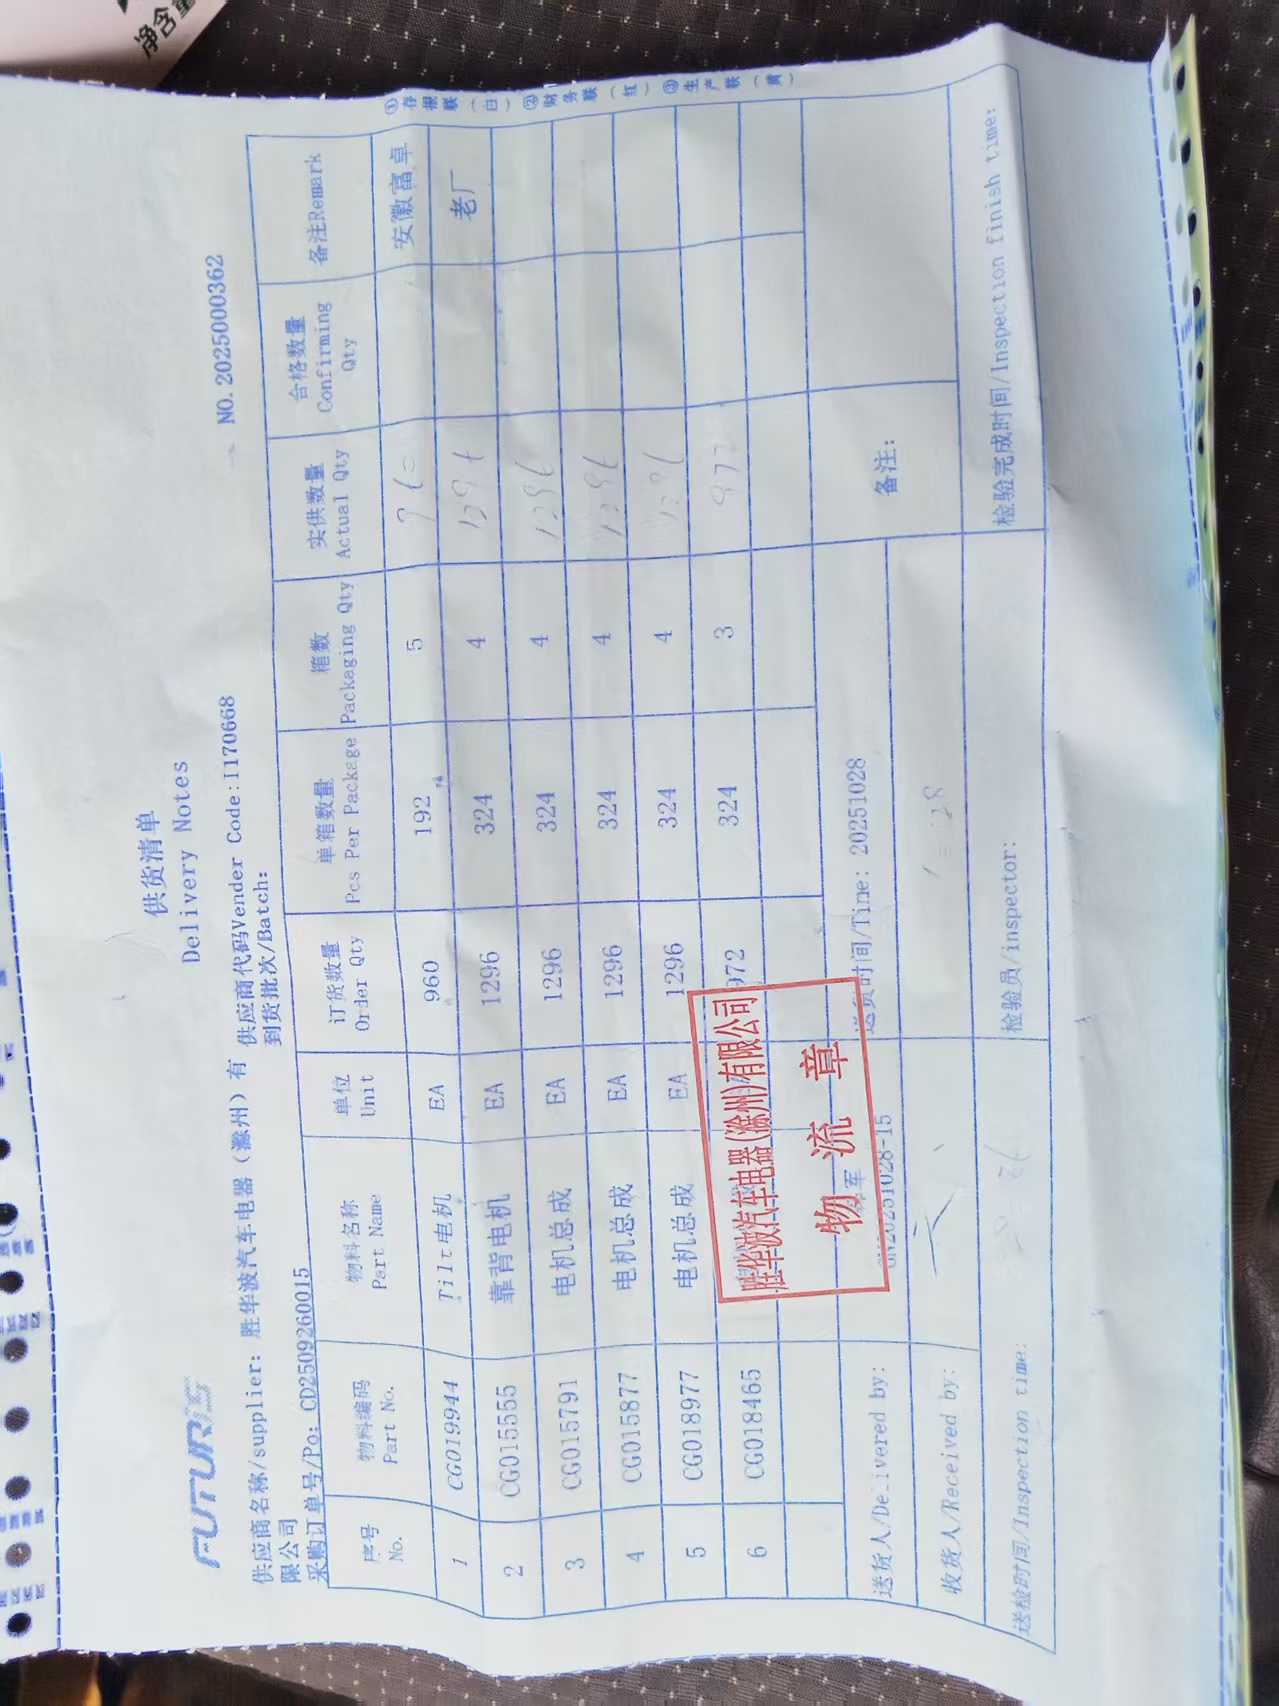 净含量
FUTURIS
供货清单
Delivery Notes
NO. 2025000362
供应商名称/supplier: 胜华波汽车电器（滁州）有限公司
供应商代码Vender Code:I170668
采购订单号/Po: CD2509260015
到货批次/Batch:
序号 No. 物料编码 Part No. 物料名称 Part Name 单位 Unit 订货数量 Order Qty 单箱数量 Pcs Per Package 箱数 Packaging Qty 实供数量 Actual Qty 合格数量 Confirming Qty 备注Remark
1 CG019944 Tilt电机 EA 960 192 5 960 安徽富卓
2 CG015555 靠背电机 EA 1296 324 4 1296 老厂
3 CG015791 电机总成 EA 1296 324 4 1296
4 CG015877 电机总成 EA 1296 324 4 1296
5 CG018977 电机总成 EA 1296 324 4 1296
6 CG018465 972 324 3 972
胜华波汽车电器(滁州)有限公司
物流章
送货人/Delivered by: 军
20251028-15
送货时间/Time: 20251028
备注:
收货人/Received by:
送检时间/Inspection time:
检验员/inspector:
检验完成时间/Inspection finish time:
①存根联（白）②财务联（红）③生产联（黄）